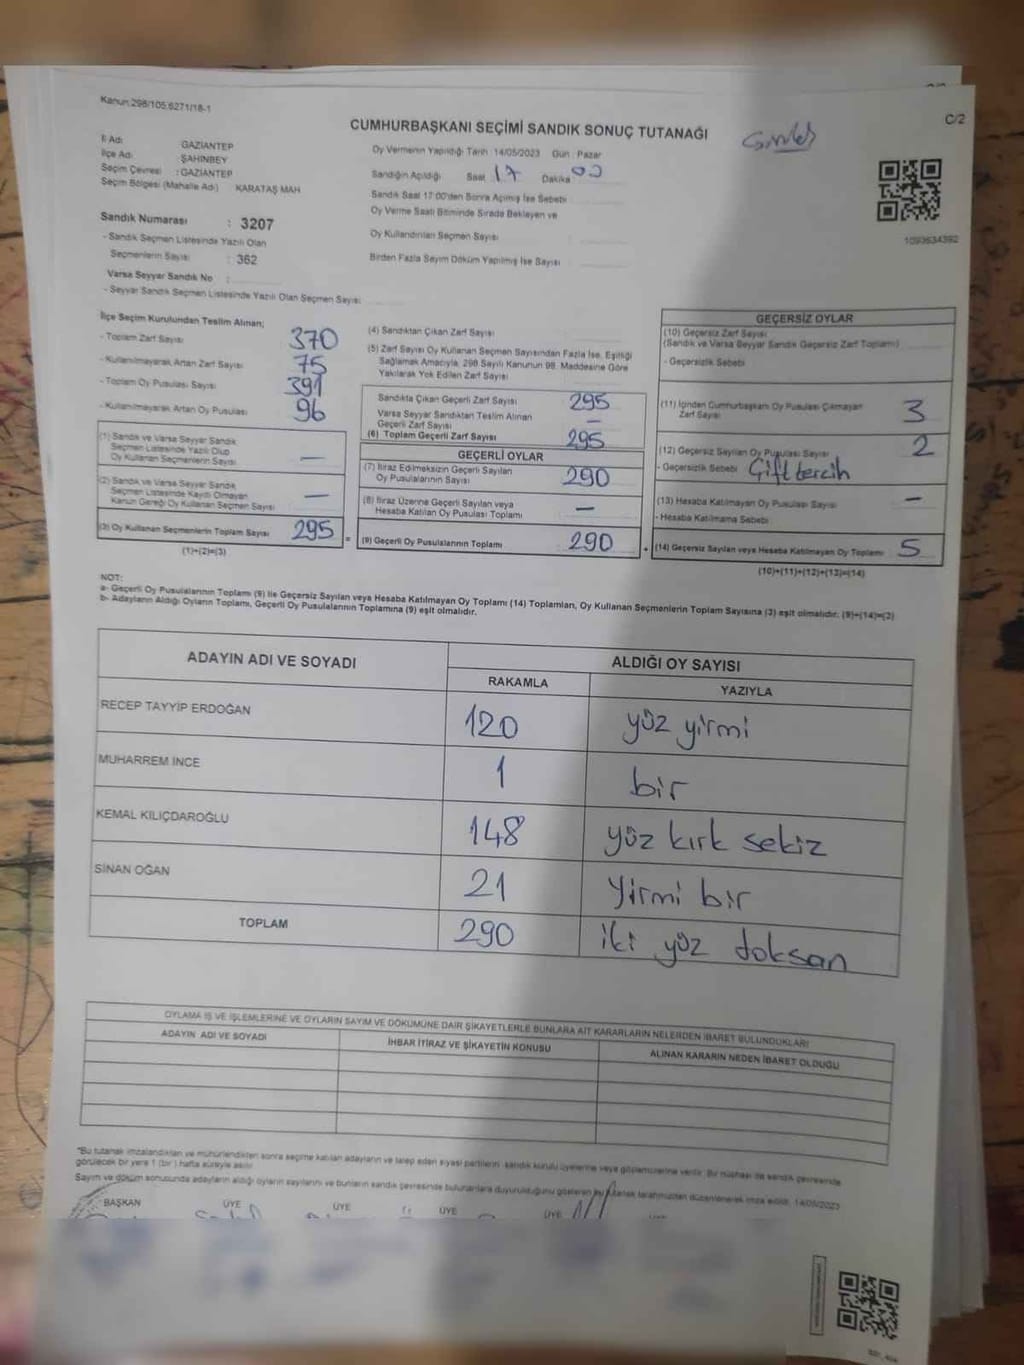 Kanun:298/105,6271/18-1
C/2
CUMHURBAŞKANI SEÇİMİ SANDIK SONUÇ TUTANAĞI
İl Adı : GAZİANTEP
İlçe Adı : ŞAHİNBEY
Seçim Çevresi : GAZİANTEP
Seçim Bölgesi (Mahalle Adı) KARATAŞ MAH
Sandık Numarası : 3207
- Sandık Seçmen Listesinde Yazılı Olan
Seçmenlerin Sayısı : 362
Varsa Seyyar Sandık No :
- Seyyar Sandık Seçmen Listesinde Yazılı Olan Seçmen Sayısı
Oy Vermenin Yapıldığı Tarih :14/05/2023 Gün : Pazar
Sandığın Açıldığı Saat 17 Dakika 00
Sandık Saat 17:00'den Sonra Açılmış İse Sebebi
Oy Verme Saati Bitiminde Sırada Bekleyen ve
Oy Kullandırılan Seçmen Sayısı
Birden Fazla Sayım Döküm Yapılmış İse Sayısı
1093634392
İlçe Seçim Kurulundan Teslim Alınan;
- Toplam Zarf Sayısı 370
- Kullanılmayarak Artan Zarf Sayısı 75
- Toplam Oy Pusulası Sayısı 391
- Kullanılmayarak Artan Oy Pusulası 96
(1) Sandık ve Varsa Seyyar Sandık
Seçmen Listesinde Yazılı Olup
Oy Kullanan Seçmenlerin Sayısı —
(2) Sandık ve Varsa Seyyar Sandık
Seçmen Listesinde Kayıtlı Olmayan
Kanun Gereği Oy Kullanan Seçmen Sayısı —
(3) Oy Kullanan Seçmenlerin Toplam Sayısı 295
(1)+(2)=(3)
(4) Sandıktan Çıkan Zarf Sayısı
(5) Zarf Sayısı Oy Kullanan Seçmen Sayısından Fazla İse, Eşitliği
Sağlamak Amacıyla, 298 Sayılı Kanunun 98. Maddesine Göre
Yakılarak Yok Edilen Zarf Sayısı
Sandıkta Çıkan Geçerli Zarf Sayısı 295
Varsa Seyyar Sandıktan Teslim Alınan
Geçerli Zarf Sayısı —
(6) Toplam Geçerli Zarf Sayısı 295
GEÇERLİ OYLAR
(7) İtiraz Edilmeksizin Geçerli Sayılan
Oy Pusulalarının Sayısı 290
(8) İtiraz Üzerine Geçerli Sayılan veya
Hesaba Katılan Oy Pusulası Toplamı —
(9) Geçerli Oy Pusulalarının Toplamı 290
GEÇERSİZ OYLAR
(10) Geçersiz Zarf Sayısı
(Sandık ve Varsa Seyyar Sandık Geçersiz Zarf Toplamı)
- Geçersizlik Sebebi
(11) İçinden Cumhurbaşkanı Oy Pusulası Çıkmayan
Zarf Sayısı 3
(12) Geçersiz Sayılan Oy Pusulası Sayısı 2
- Geçersizlik Sebebi Çift tercih
(13) Hesaba Katılmayan Oy Pusulası Sayısı —
- Hesaba Katılmama Sebebi
(14) Geçersiz Sayılan veya Hesaba Katılmayan Oy Toplamı 5
(10)+(11)+(12)+(13)=(14)
NOT:
a- Geçerli Oy Pusulaları Toplamı (9) ile Geçersiz Sayılan veya Hesaba Katılmayan Oy Toplamı (14) Toplamları, Oy Kullanan Seçmenlerin Toplam Sayısına (3) eşit olmalıdır. (9)+(14)=(3)
b- Adayların Aldığı Oyların Toplamı, Geçerli Oy Pusulalarının Toplamına (9) eşit olmalıdır.
ADAYIN ADI VE SOYADI
ALDIĞI OY SAYISI
RAKAMLA YAZIYLA
RECEP TAYYİP ERDOĞAN 120 yüz yirmi
MUHARREM İNCE 1 bir
KEMAL KILIÇDAROĞLU 148 yüz kırk sekiz
SİNAN OĞAN 21 Yirmi bir
TOPLAM 290 iki yüz doksan
OYLAMA İŞ VE İŞLEMLERİNE VE OYLARIN SAYIM VE DÖKÜMÜNE DAİR ŞİKAYETLERLE BUNLARA AİT KARARLARIN NELERDEN İBARET BULUNDUKLARI
ADAYIN ADI VE SOYADI
İHBAR İTİRAZ VE ŞİKAYETİN KONUSU
ALINAN KARARIN NEDEN İBARET OLDUĞU
*Bu tutanak imzalandıktan ve mühürlendikten sonra seçime katılan adayların ve talep eden siyasi partilerin sandık kurulu üyelerine veya gözlemcilerine verilir. Bir nüshası da sandık çevresinde
görülecek bir yere 1 (bir) hafta süreyle asılır.
Sayım ve döküm sonucunda adayların aldığı oyların sayılarını ve bunların sandık çevresinde bulunanlara duyurulduğunu gösteren bu tutanak tarafımızdan düzenlenerek imza edildi. 14/05/2023
BAŞKAN ÜYE ÜYE ÜYE ÜYE